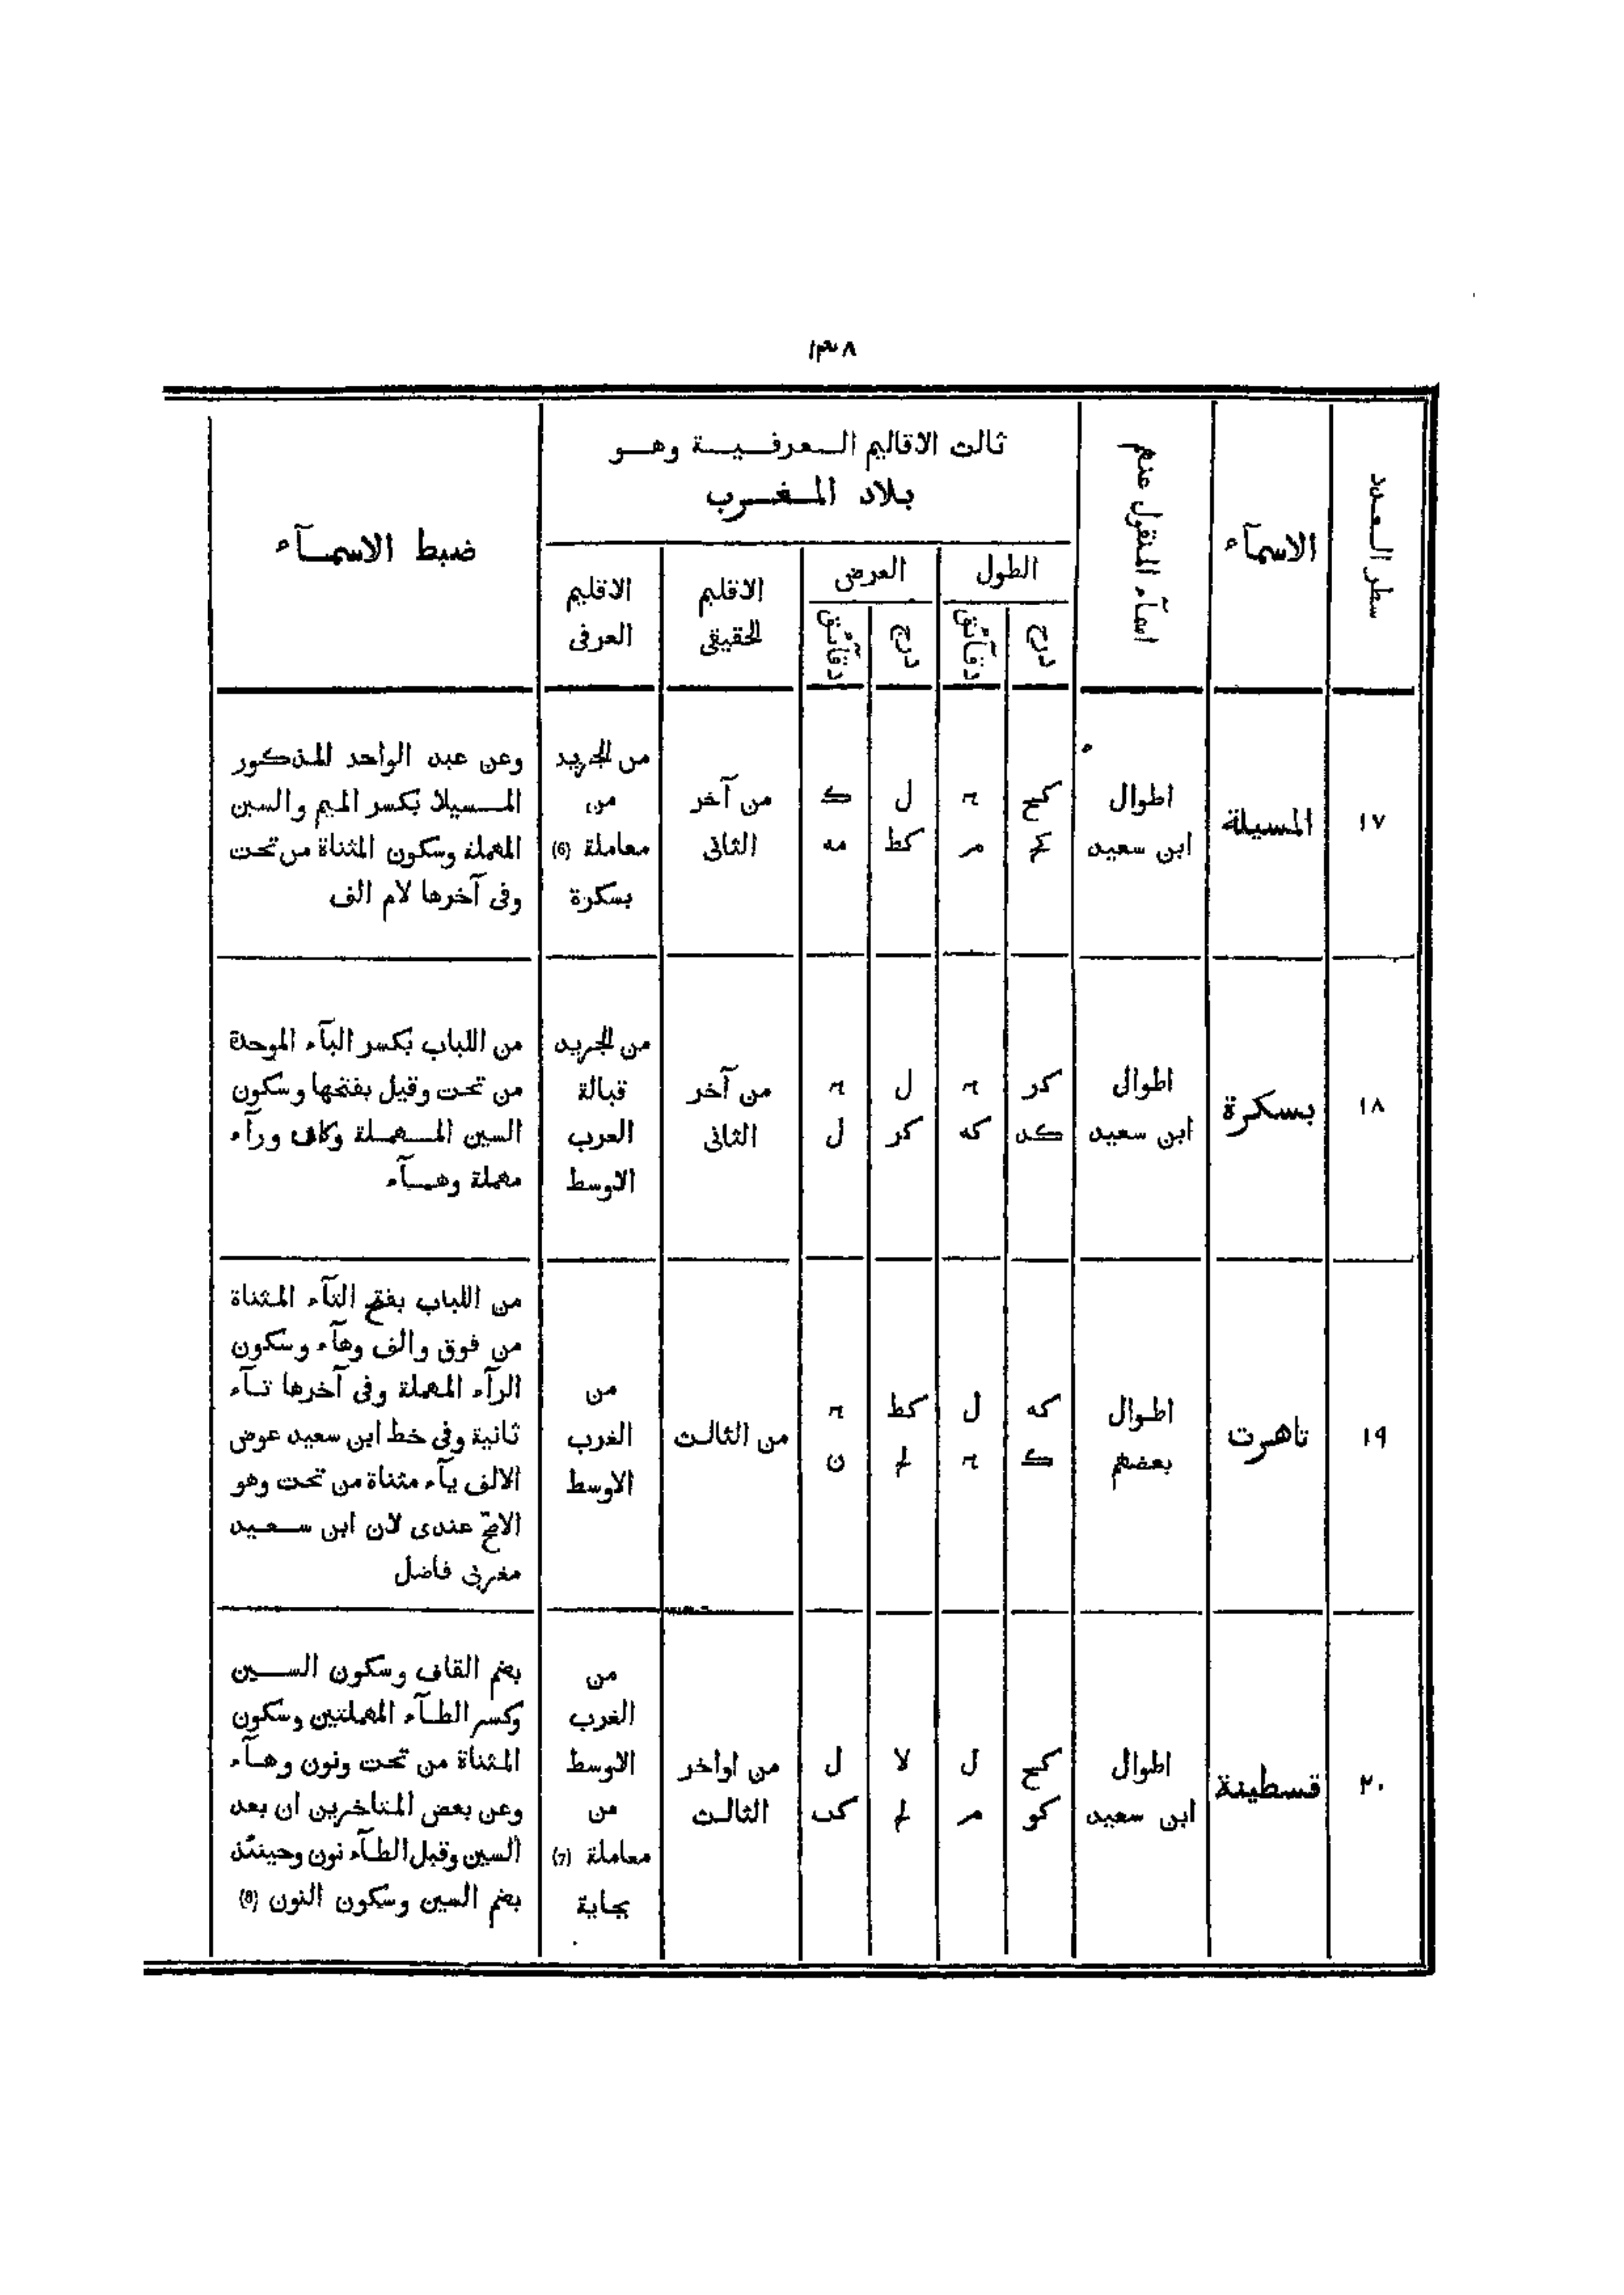 ١٣٨
ثالث الاقاليم العرفية وهو
بلاد المغرب
سطر العدد
الاسمآء
اسمآء المنقول عنهم
الطول
العرض
درج
دقآئق
درج
دقآئق
الاقليم
الحقيقى
الاقليم
العرفى
ضبط الاسمآء
١٧
المسيلة
اطوال
ابن سعيد
كح
ل
ك
م
كط
مه
من آخر
الثانى
من الجريد
من
معاملة (6)
بسكرة
وعن عبد الواحد المذكور
المسيلا بكسر الميم والسين
المهملة وسكون المثناة من تحت
وفى آخرها لام الف
١٨
بسكرة
اطوال
ابن سعيد
كر
ل
كد
كه
كر
ل
من آخر
الثانى
من الجريد
قبالة
العرب
الاوسط
من اللباب بكسر البآء الموحدة
من تحت وقيل بفتحها وسكون
السين المهملة وكاف ورآء
مهملة وهآء
١٩
تاهرت
اطوال
بعضهم
كه
ل
كط
ك
ن
من الثالث
من
الغرب
الاوسط
من اللباب بفتح التآء المثناة
من فوق والف وهآء وسكون
الرآء المهملة وفى آخرها تآء
ثانية وفى خط ابن سعيد عوض
الالف يآء مثناة من تحت وهو
الاصّح عندى لان ابن سعيد
مغربى فاضل
٢٠
قسطينة
اطوال
ابن سعيد
كح
ل
لا
ل
كو
م
كب
من اواخر
الثالث
من
الغرب
الاوسط
من
معاملة (7)
بجاية
بضم القاف وسكون السين
وكسر الطآء المهملتين وسكون
المثناة من تحت ونون وهآء
وعن بعض المتاخرين ان بعد
السين وقبل الطآء نون وحينئذ
بضم السين وسكون النون (8)